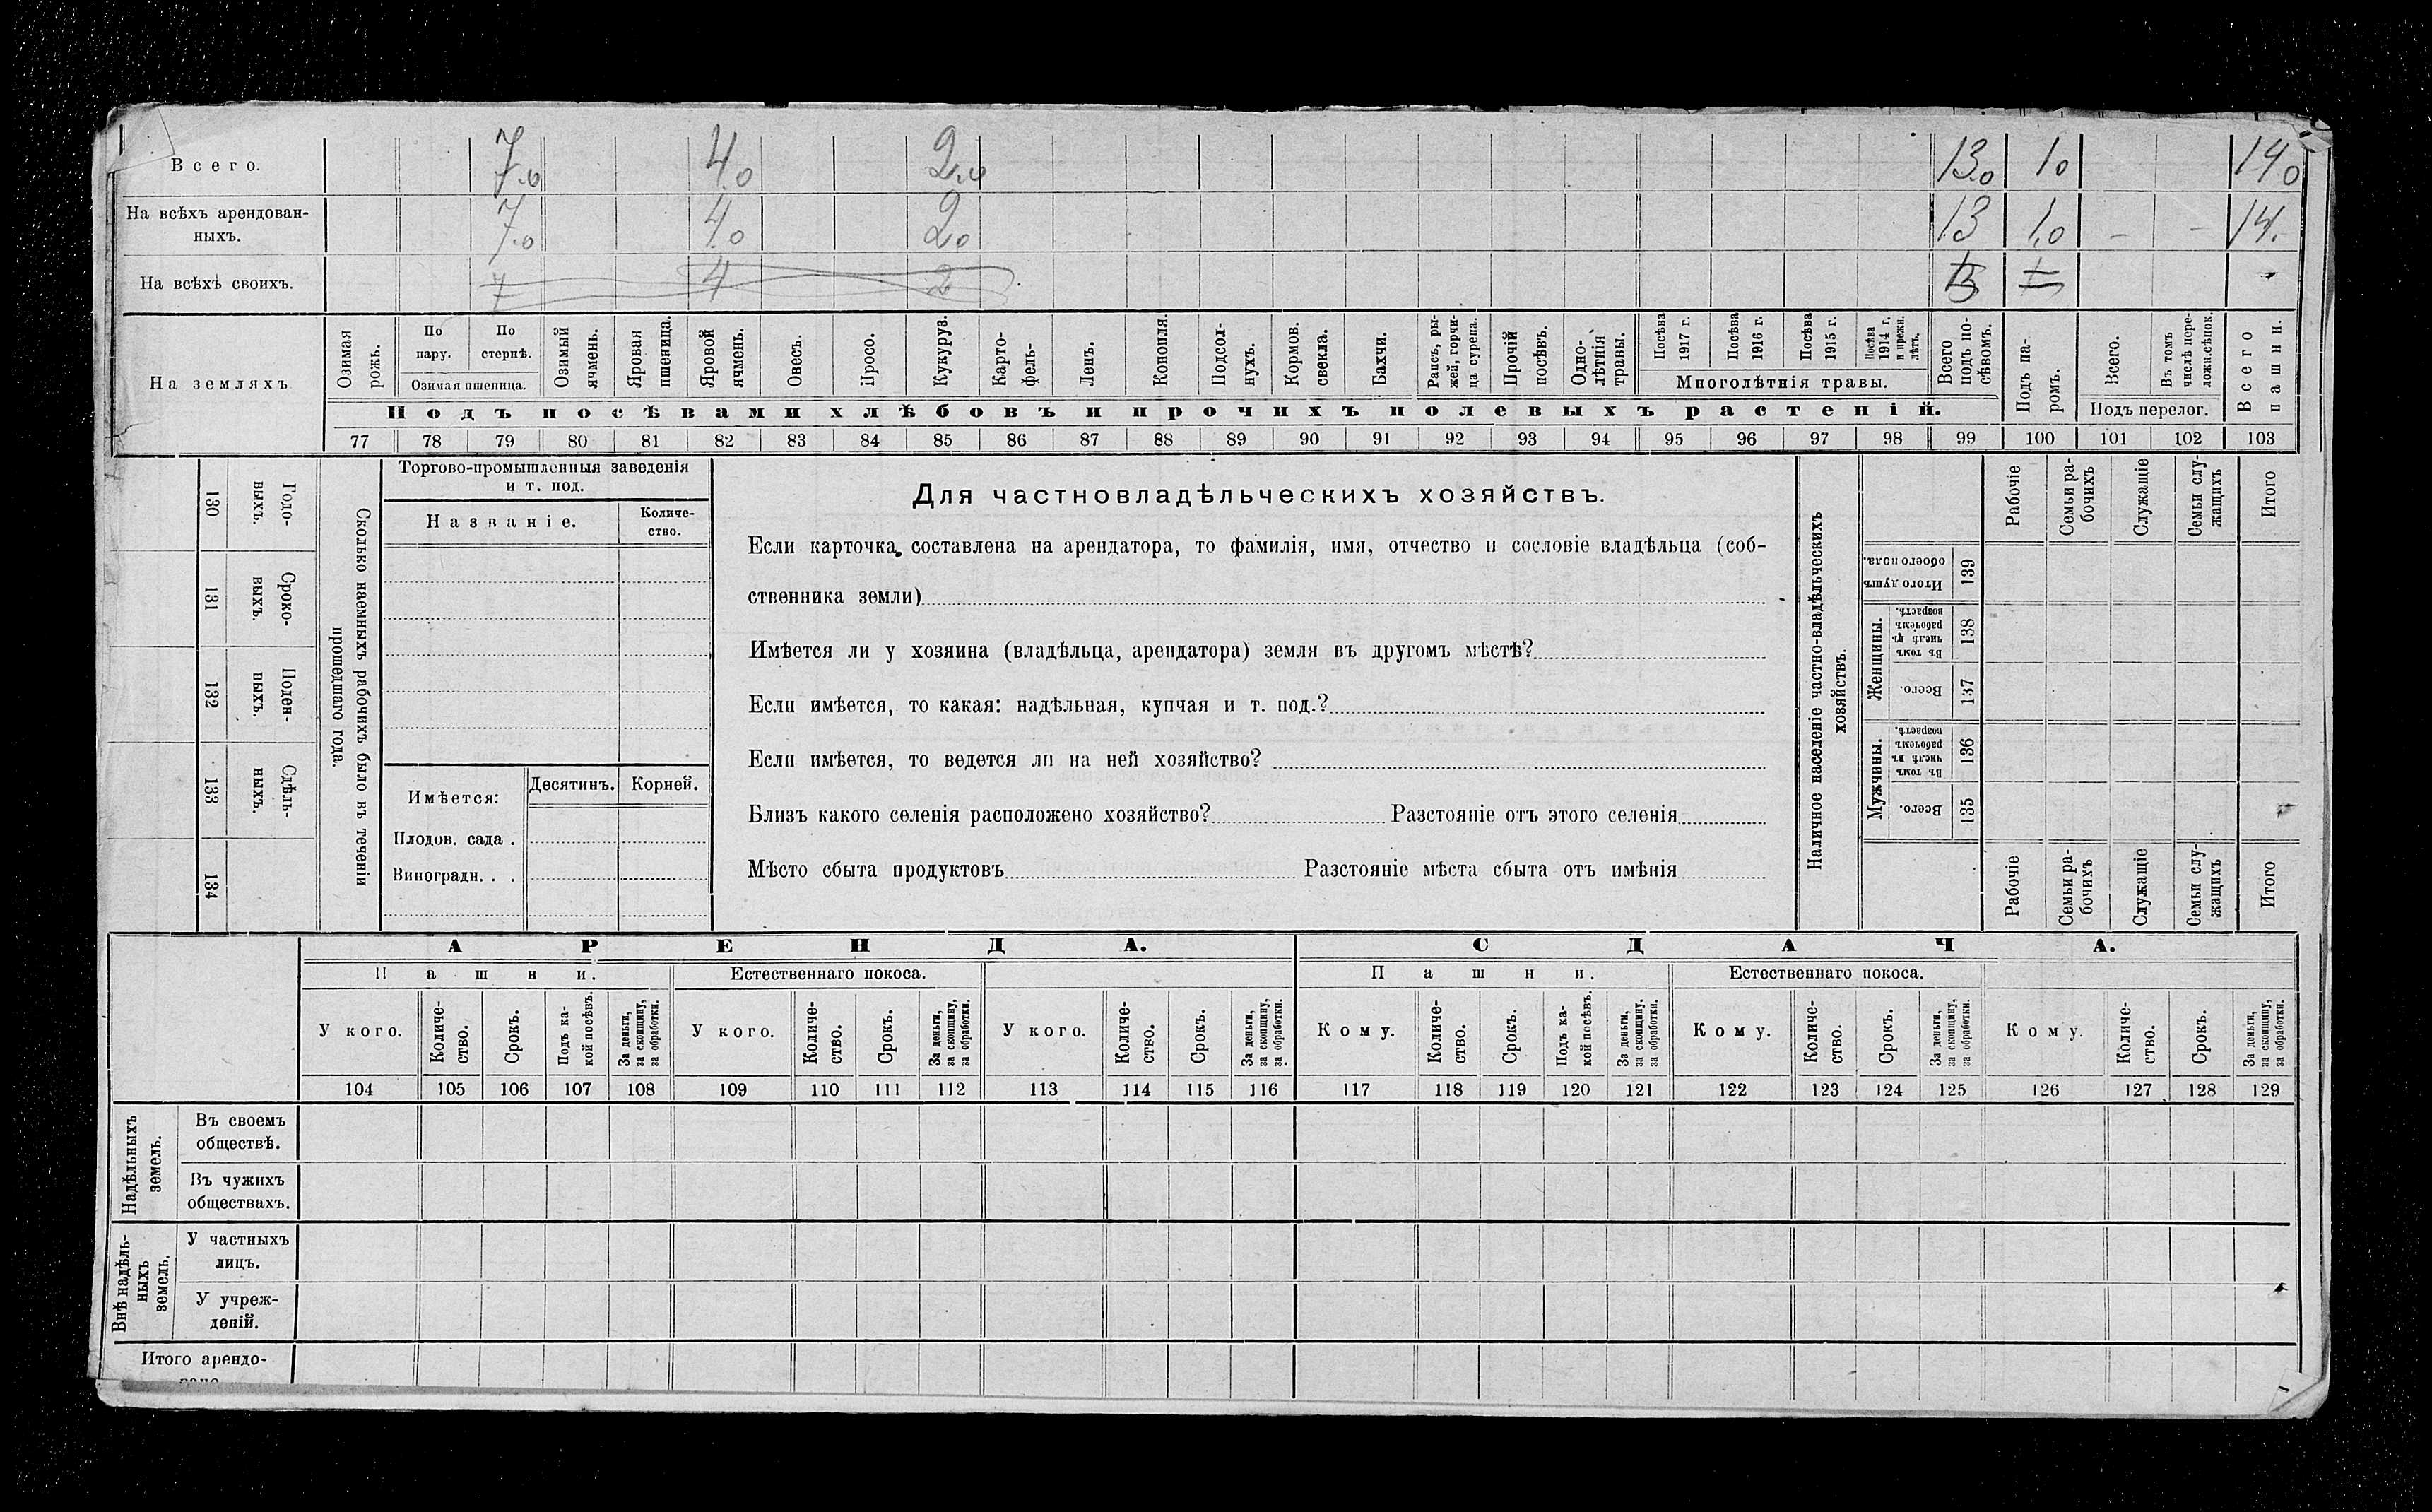 Всего. 7.0 4.0 2.0 13.0 10 140
На всѣхъ арендован-
ныхъ. 7.0 4.0 2.0 13 1.0 – – 14.
На всѣхъ своихъ. 7 4 2
На земляхъ
Озимая рожь.
По пару.
По стернѣ.
Озимая пшеница.
Озимый ячмень.
Яровая пшеница.
Яровой ячмень.
Овесъ.
Просо.
Кукуруз.
Карто-
фель-
Ленъ.
Конопля.
Подсол-
нухъ.
Кормов. свекла.
Бахчи.
Рапсъ, ры-
жей, горчи-
ца сурепа.
Прочій посѣвъ.
Одно-
лѣтнія травы.
Посѣва 1917 г.
Посѣва 1916 г.
Посѣва 1915 г.
Посѣва 1914 г. и прежн. лѣтъ.
Многолѣтнія травы.
Всего подъ по-
сѣвомъ.
Подъ па-
ромъ.
Всего.
Въ томъ числѣ пере-
ложн.сѣнок.
Подъ перелог.
Всего пашни.
Подъ посѣвами хлѣбовъ и прочихъ полевыхъ растеній.
77 78 79 80 81 82 83 84 85 86 87 88 89 90 91 92 93 94 95 96 97 98 99 100 101 102 103
130 Годо-
выхъ.
131 Сроко-
выхъ.
132 Поден-
ныхъ.
133 Сдѣль-
ныхъ.
134
Сколько наемныхъ рабочихъ было въ теченіи
прошедшаго года.
Торгово-промышленныя заведенія
и т. под.
Названіе.
Количе-
ство.
Имѣется:
Десятинъ. Корней.
Плодов. сада .
Виноградн. . .
Для частновладѣльческихъ хозяйствъ.
Если карточка составлена на арендатора, то фамилія, имя, отчество и сословіе владѣльца (соб-
ственника земли)
Имѣется ли у хозяина (владѣльца, арендатора) земля въ другомъ мѣстѣ?
Если имѣется, то какая: надѣльная, купчая и т. под.?
Если имѣется, то ведется ли на ней хозяйство?
Близъ какого селенія расположено хозяйство? Разстояніе отъ этого селенія
Мѣсто сбыта продуктовъ Разстояніе мѣста сбыта отъ имѣнія
Наличное населеніе частно-владѣльческихъ
хозяйствъ.
Рабочіе
Семьи ра-
бочихъ
Служащіе
Семьи слу-
жащихъ
Итого
Итого душъ
обоего пола. 139
Женщины.
Въ томъ числѣ въ рабочемъ возрастѣ. 138
Всего. 137
Мужчины.
Въ томъ числѣ въ рабочемъ возрастѣ. 136
Всего. 135
Рабочіе
Семьи ра-
бочихъ
Служащіе
Семьи слу-
жащихъ
Итого
АРЕНДА. СДАЧА.
Пашни. Естественнаго покоса. Пашни. Естественнаго покоса.
У кого.
Количе-
ство.
Срокъ.
Подъ ка-
кой посѣвъ.
За деньги,
за скопщину,
за обработки.
У кого.
Количе-
ство.
Срокъ.
За деньги,
за скопщину,
за обработки.
У кого.
Количе-
ство.
Срокъ.
За деньги,
за скопщину,
за обработки.
Кому.
Количе-
ство.
Срокъ.
Подъ ка-
кой посѣвъ.
За деньги,
за скопщину,
за обработки.
Кому.
Количе-
ство.
Срокъ.
За деньги,
за скопщину,
за обработки.
Кому.
Количе-
ство.
Срокъ.
За деньги,
за скопщину,
за обработки.
104 105 106 107 108 109 110 111 112 113 114 115 116 117 118 119 120 121 122 123 124 125 126 127 128 129
Надѣльныхъ
земель.
Въ своемъ
обществѣ.
Въ чужихъ
обществахъ.
Внѣ надѣль-
ныхъ
земель.
У частныхъ
лицъ.
У учреж-
деній.
Итого арендо-